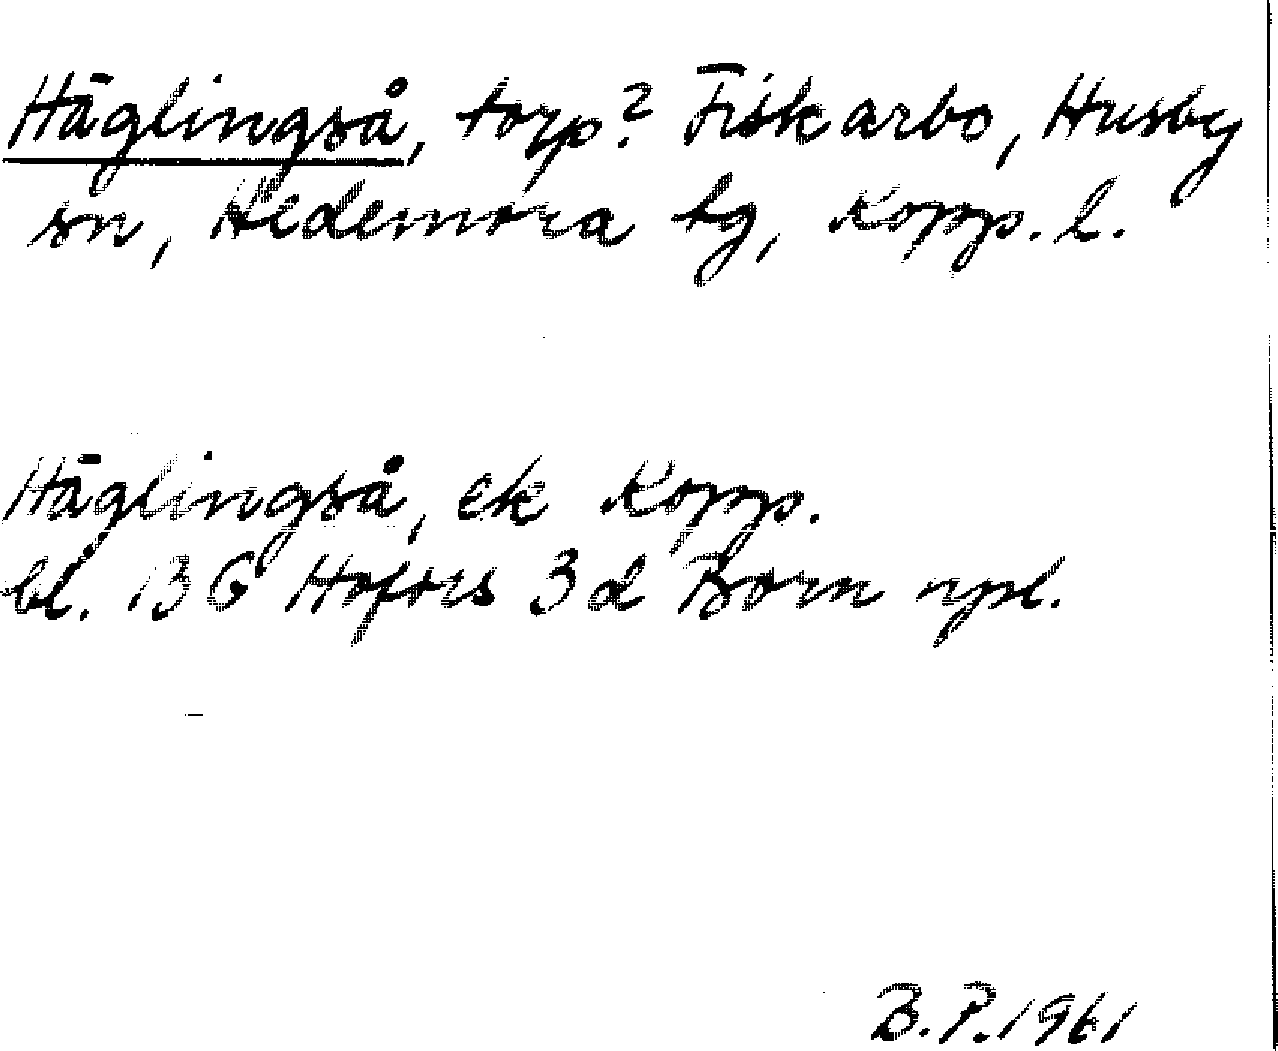 Häglingså, torp? Fiskarbo, Husby
sn, Hedemora tg, Kopp. l.
Häglingså, ek Kopp.
bl. 13 G Hofors 3 d Born npl.
B.P. 1961